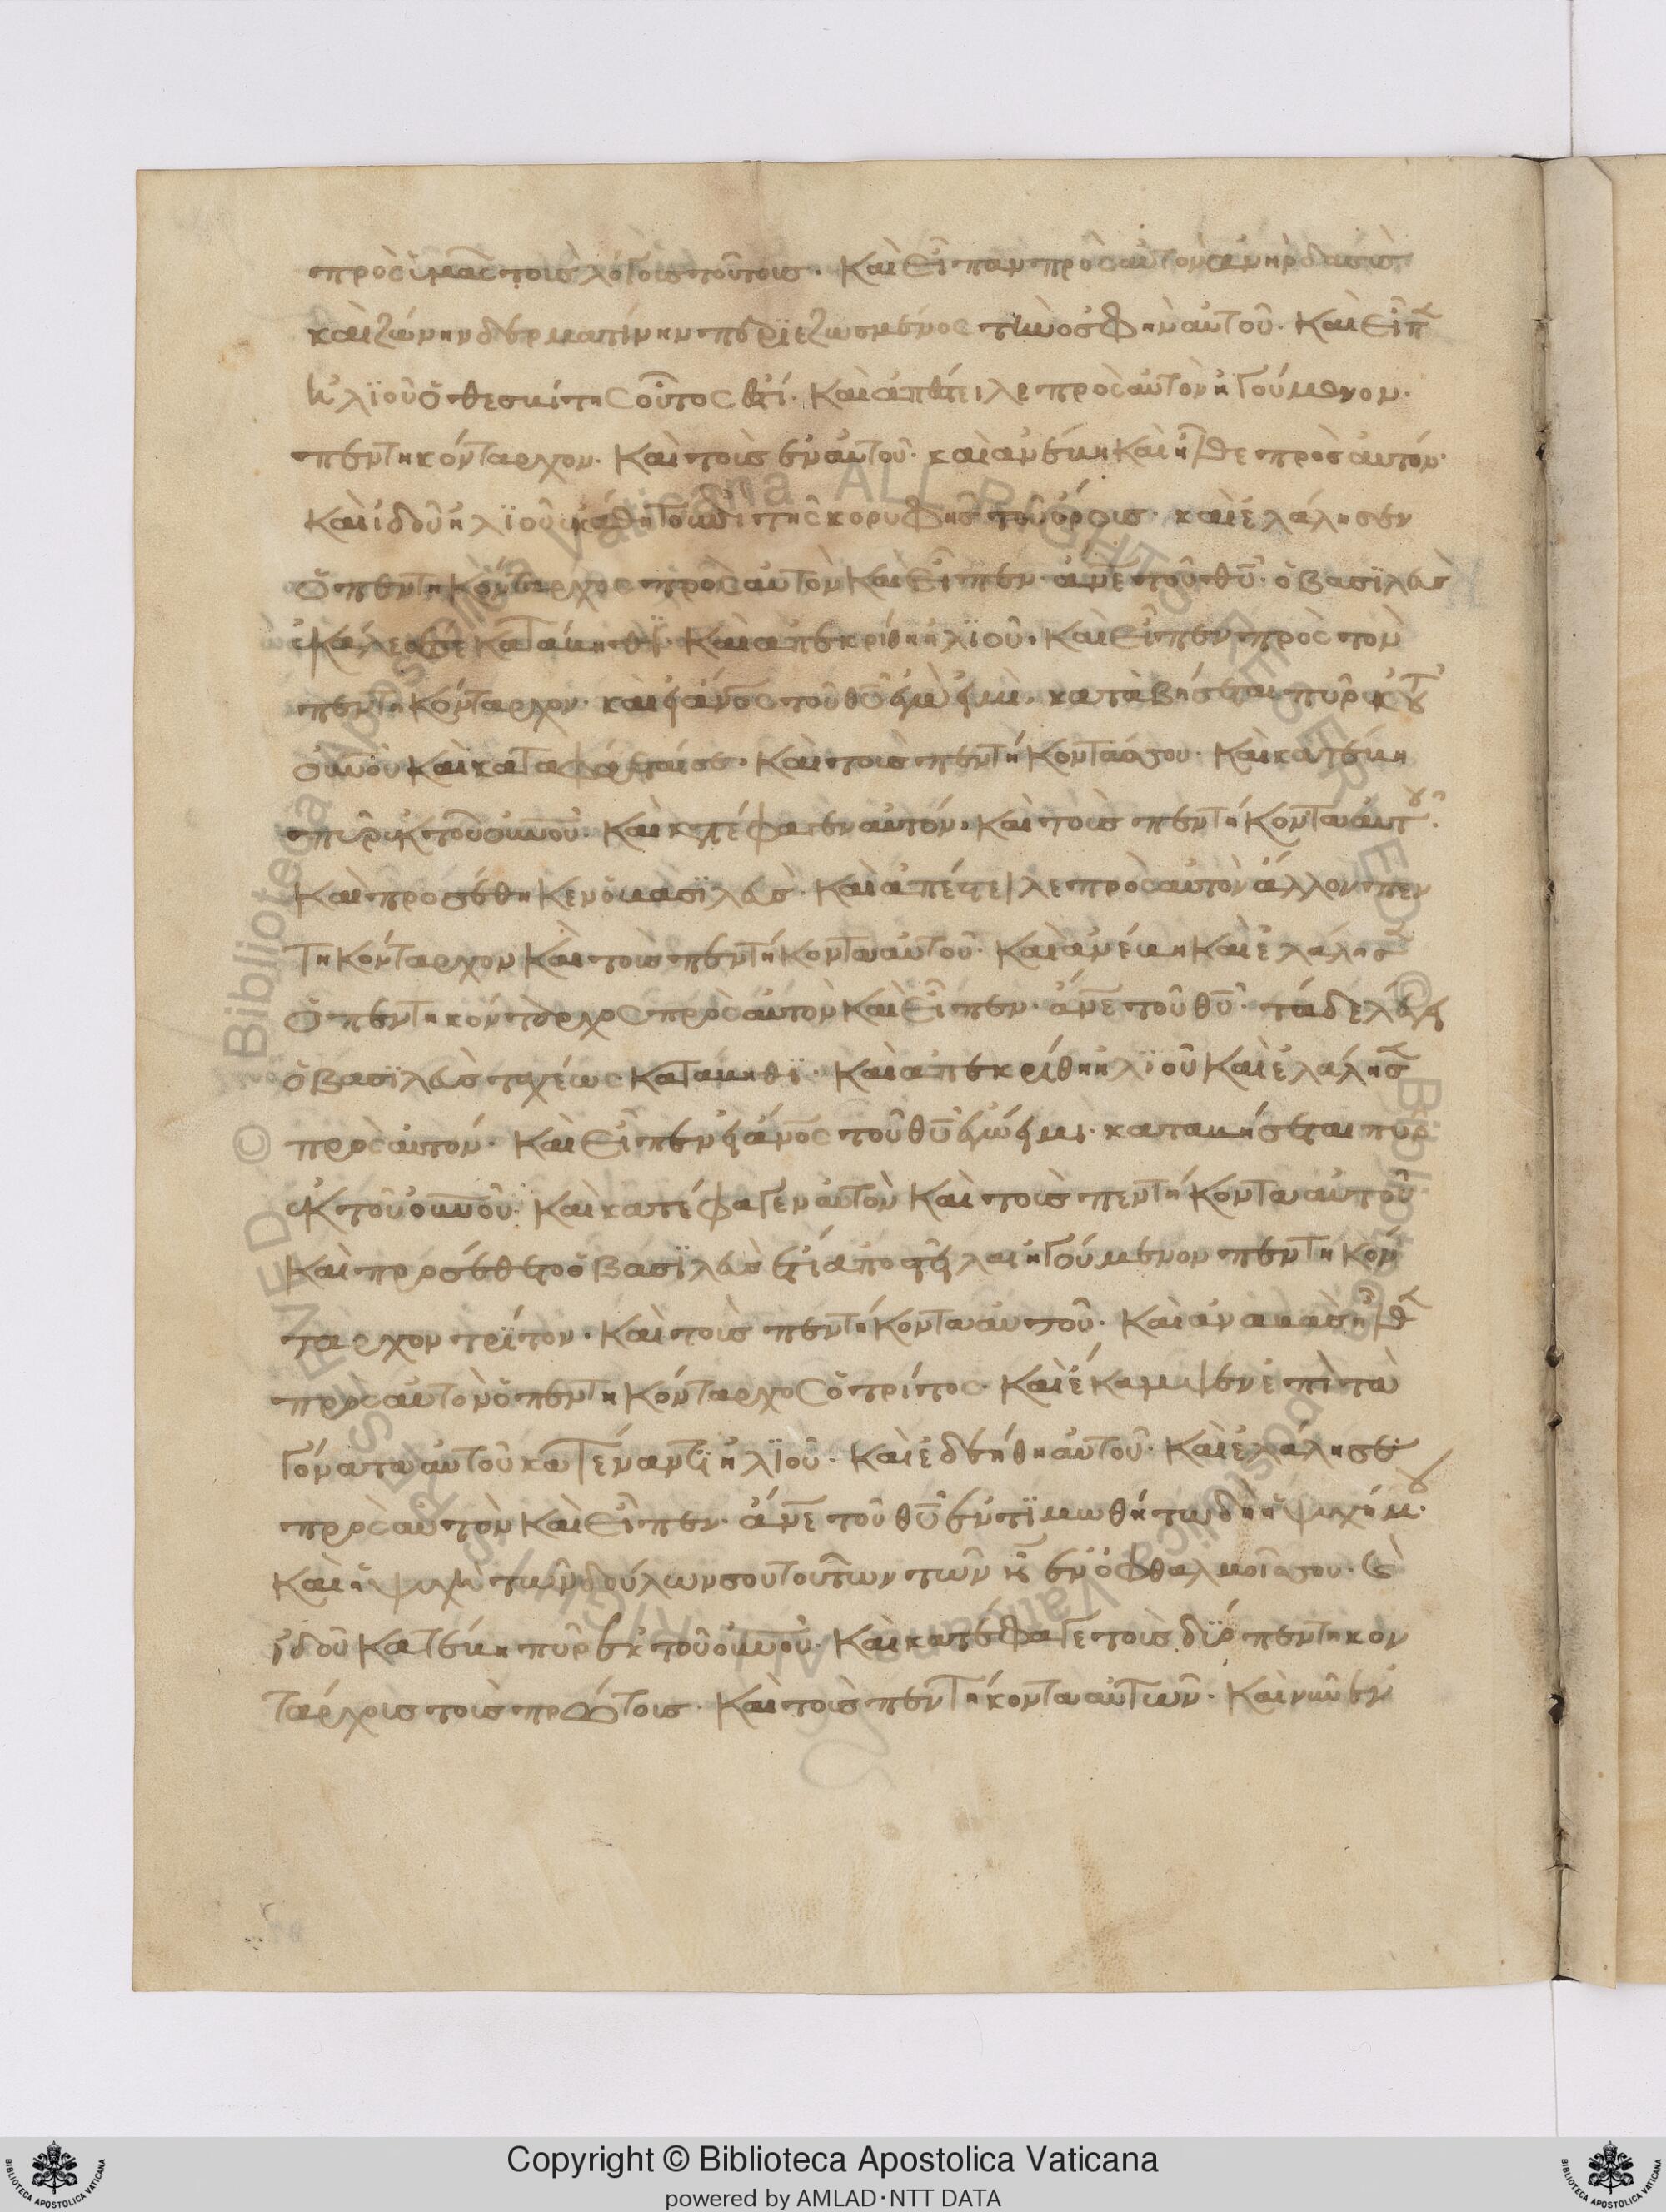 πρὸς ὑμᾶς τοὺς λόγους τούτους· καὶ εἶπαν πρὸς αὐτὸν ἀνὴρ δασὺς
καὶ ζώνην δερματίνην περϊεζωσμένος τὴν ὀσφὴν αὐτοῦ· καὶ εἶπ
ἠλϊοὺ ὁ θεσβίτης οὗτος ἐστί· καὶ ἀπέστειλε πρὸς αὐτὸν ἡγούμενον·
πεντηκόνταρχον· καὶ τοὺς ἐν αὐτοῦ· καὶ ἀνέβη καὶ ἦλθε πρὸς αὐτόν·
καὶ ἰδοὺ ἠλϊοὺ ἐκάθητο ἐπὶ τῆς κορυφῆς τοῦ ὄρους· καὶ ἐλάλησεν
ὁ πεντηκόνταρχος πρὸς αὐτὸν καὶ εἶπεν· ἄνε τοῦ θυ· ὁ βασϊλεὺς
ἐκάλεσέ σε κατάβηθϊ· καὶ ἀπεκρίθη ἠλϊού· καὶ εἶπεν πρὸς τὸν
πεντηκόνταρχον· καὶ εἰ ἄνος τοῦ θυ ἐγὼ εἰμὶ· καταβήσεται πῦρ ἐκ τοῦ
οὐνοῦ καὶ καταφάγεταί σε· καὶ τοὺς πεντήκοντά σου· καὶ κατέβη
πῦρ ἐκ τοῦ οὐνοῦ· καὶ κατέφαγεν αὐτόν· καὶ τοὺς πεντήκοντα αὐτοῦ·
καὶ προσέθηκεν ὁ βασϊλεὺς· καὶ ἀπέστειλε πρὸς αὐτὸν ἄλλον πεν
τηκόνταρχον καὶ τοὺς πεντήκοντα αὐτοῦ· καὶ ἀνέβη καὶ ἐλάλησ
ὁ πεντηκόνταρχος πρὸς αὐτὸν καὶ εἶπεν· ἄνε τοῦ θυ· τάδε λέγει
ὁ βασϊλεὺς ταχέως κατάβηθϊ· καὶ ἀπεκρίθη ἠλϊοὺ καὶ ἐλάλησ
πρὸς αὐτόν· καὶ εἶπεν εἰ ἄνος τοῦ θυ ἐγώ εἰμι· καταβήσεται πῦρ
ἐκ τοῦ οὐνοῦ· καὶ κατέφαγεν αὐτὸν καὶ τοὺς πεντήκοντα αὐτοῦ
καὶ προσέθετο ὁ βασϊλεὺς ἔτι ἀποστεῖλαι ἡγούμενον πεντηκόν
ταρχον τρίτον· καὶ τοὺς πεντήκοντα αὐτοῦ· καὶ ἀναβὰς ἦλθ
πρὸς αὐτὸν ὁ πεντηκόνταρχος ὁ τρίτος· καὶ ἔκαμψεν ἐπὶ τὰ
γόνατα αὐτοῦ κατέναντϊ ἠλϊού· καὶ ἐδεήθη αὐτοῦ· καὶ ἐλάλησε
πρὸς αὐτὸν καὶ εἶπεν· ἄνε τοῦ θυ ἐντϊμωθήτω δὴ ἡ ψυχή μου·
καὶ ἡ ψυχὴ τῶν δούλων σου τούτων τῶν ν ἐν ὀφθαλμοῖς σου· καὶ
ἰδοὺ κατέβη πῦρ ἐκ τοῦ οὐνοῦ· καὶ κατέφαγε τοὺς δύο πεντηκον
τάρχους τοὺς πρώτους· καὶ τοὺς πεντήκοντα αὐτῶν· καὶ νῦν ἐν
© Biblioteca Apostolica Vaticana ALL RIGHTS RESERVED
Copyright © Biblioteca Apostolica Vaticana
powered by AMLAD·NTT DATA
BIBLIOTECA APOSTOLICA VATICANA
BIBLIOTECA APOSTOLICA VATICANA